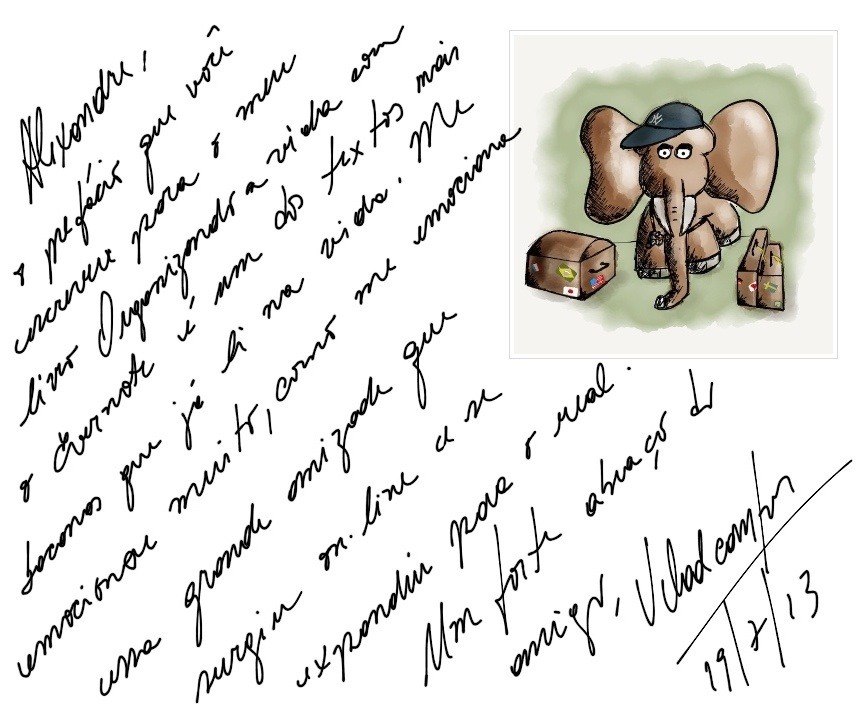 Alexandre,
o prefácio que você
escreveu para o meu
livro Organizando a vida com
o Evernote é um dos textos mais
bacanas que já li na vida. Me
emocionou muito, como me emociona
uma grande amizade que
surgiu on-line e se
expandiu para o real.
Um forte abraço do
amigo, Vladcampos
19/7/13
NY